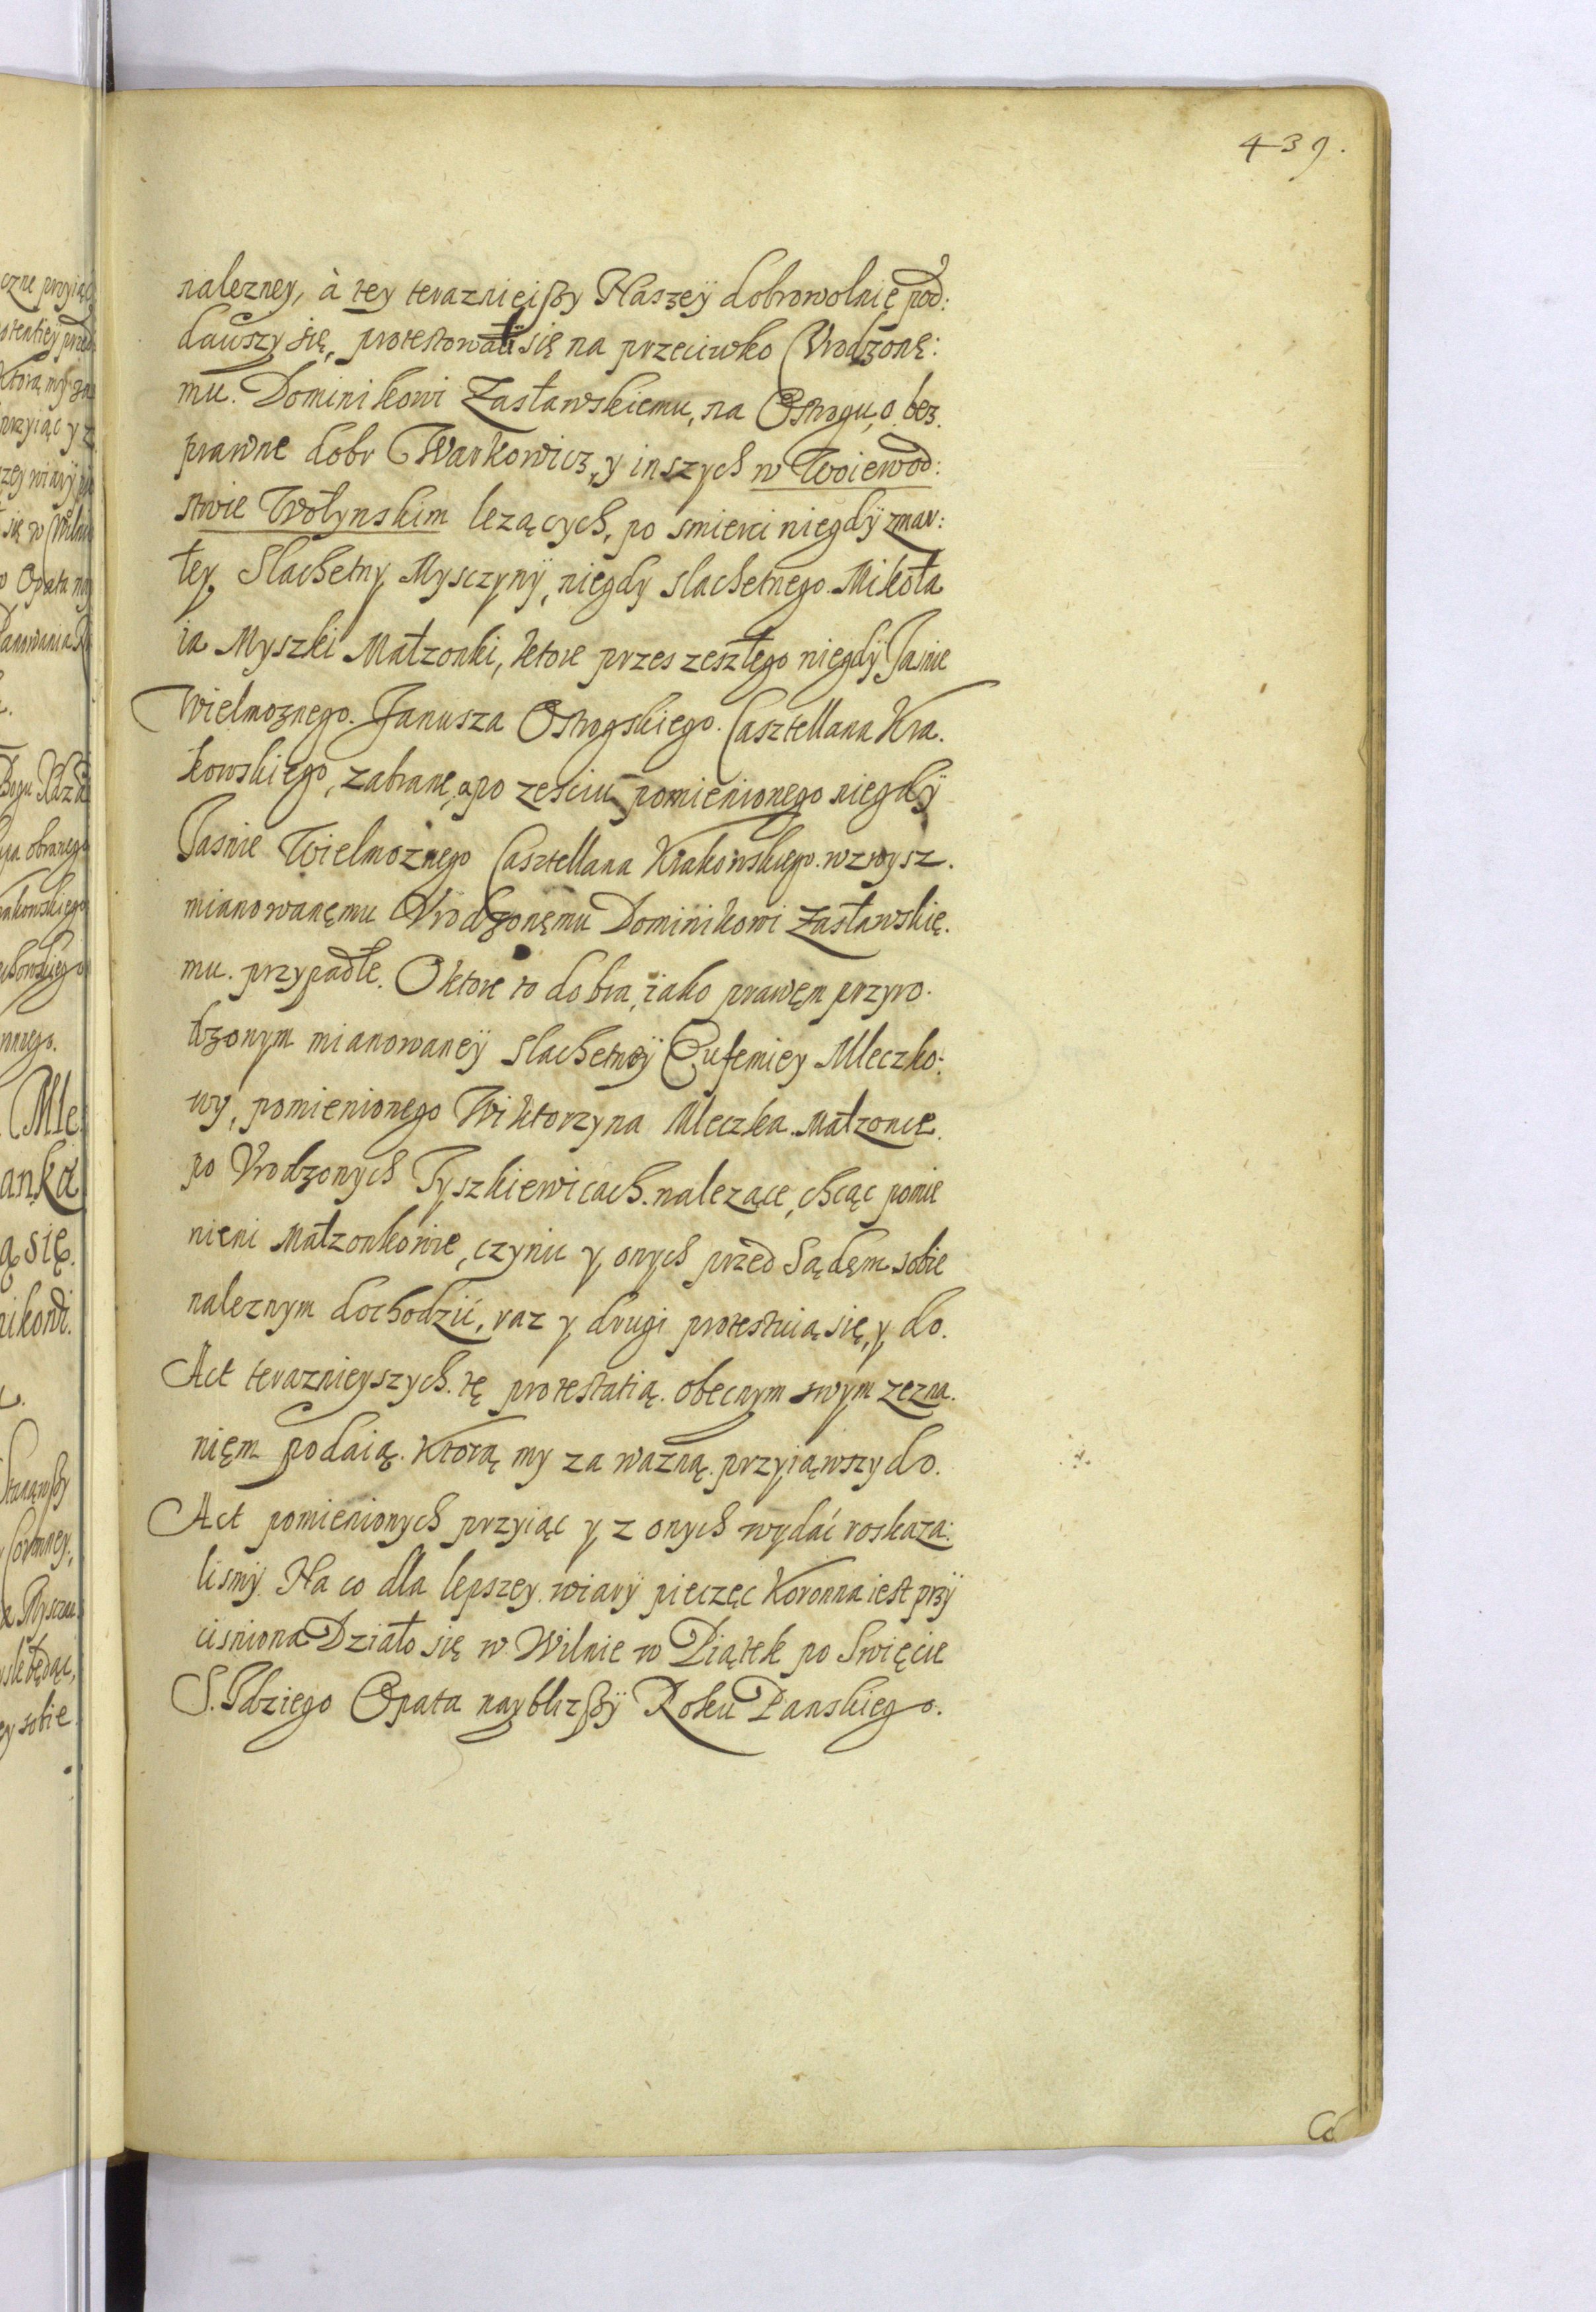 439.
nalezney, à tey terazniejszy Naszeÿ dobrowolnię pod:
dawszy się, protestowali się na przeciwko Vrodzonę:
mu. Dominikowi Zasławskiemu, na Ostrogu, o bez.
prawne dobr Warkowicz, y inszych w Woiewod:
stwie Wołynskim lezących, po smierci niegdÿ zmar:
łey Slachetny Mysczynÿ, niegdy slachetnego Mikoła
ia Myszki Małzonki, ktore przes zeszłego niegdÿ Jasnie
Wielmoznego. Janusza Ostrogskiego. Casztellana Kra.
kowskiego, zabrane, a po zesciu pomienionego niegdÿ
Jasnie Wielmoznego Casztellana Krakowskiego. wzwysz.
mianowanęmu Vrodzonęmu Dominikowi Zasławskię.
mu. przypadłe. O ktore to dobra, iako prawęm przyro.
dzonym mianowaneÿ slachetnÿ Eufemiey Mleczko:
wy, pomienionego Wiktorzyna Mleczka Małzonce.
po Vrodzonych Tyszkiewicach. nalezące, chcąc pomie
nieni Małzonkowie, czynic y onych przed Sądęm sobie
naleznym dochodzić, raz y drugi protestuią się, y do.
Act teraznieyszych. tę protestatią. obecnym swym zezna.
nięm podaią. Ktorą my za wazną. przyiąwszy do.
Act pomienionych przyiąc y z onych wydać roskaza:
lismÿ. Na co dla lepszey wiarÿ pieczęc Koronna iest przÿ
cisniona Działo się w Wilnie w Piątek po Swięcie
S. Idziego Opata nayblizszÿ Roku Panskiego.